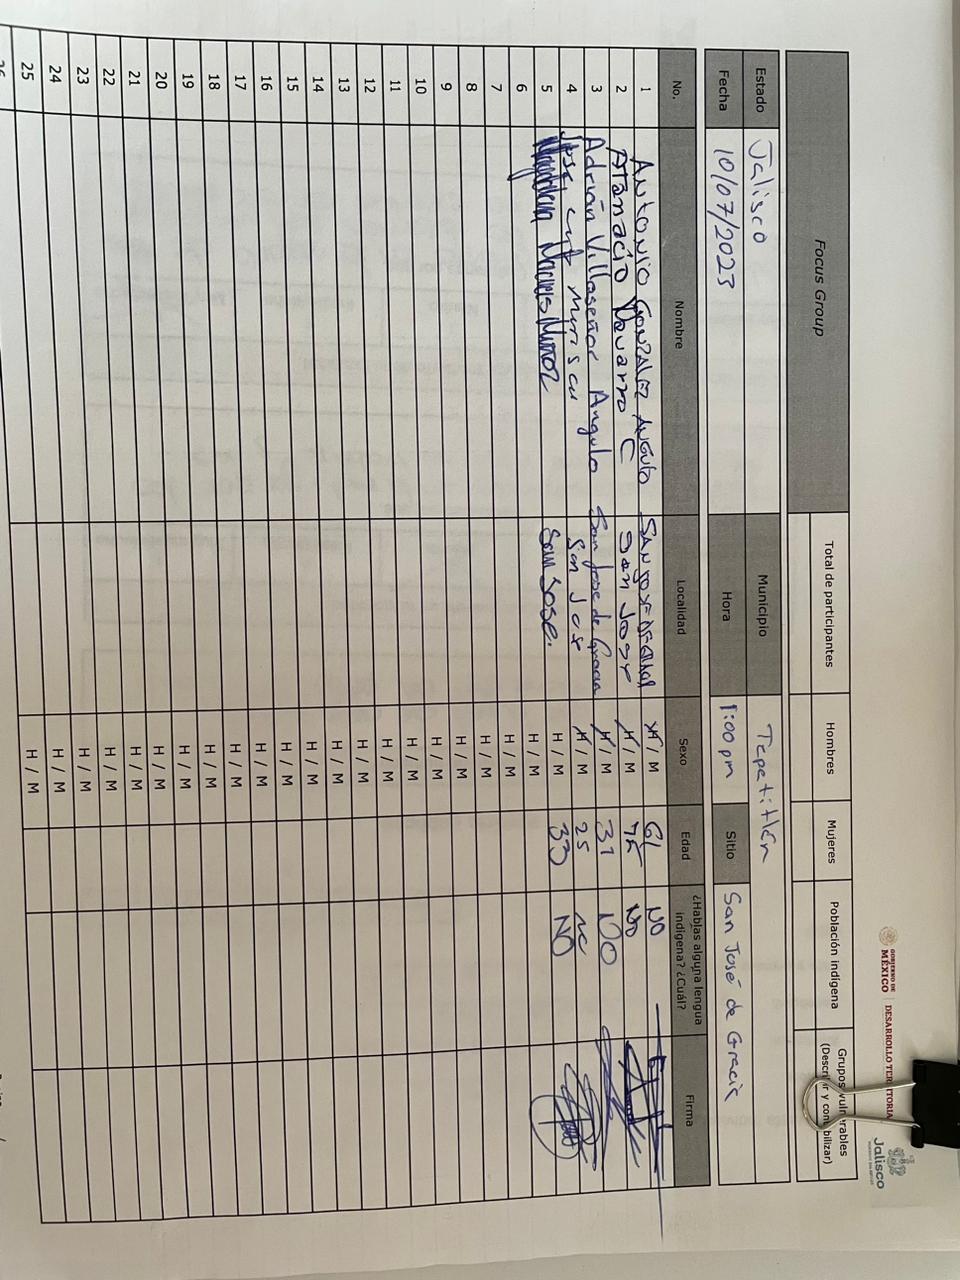 GOBIERNO DE MÉXICO
DESARROLLO TERRITORIA
Jalisco
Focus Group
Total de participantes Hombres Mujeres Población indígena Grupos vulnerables (Describir y contabilizar)
Estado Jalisco Municipio Tepetitlán
Fecha 10/07/2023 Hora 1:00 pm Sitio San José de Gracia
No. Nombre Localidad Sexo Edad ¿Hablas alguna lengua indígena? ¿Cuál? Firma
1 ANTONIO GONZALEZ ANGULO H / M 61 NO
2 Atanacio Navarro C San Jose H / M NO
3 Adrián Villaseñor Angulo San Jose de Gracia H / M 31 NO
4 Jose San Jose H / M 25 no
5 Muñoz San Jose. H / M 33 NO
6 H / M
7 H / M
8 H / M
9 H / M
10 H / M
11 H / M
12 H / M
13 H / M
14 H / M
15 H / M
16 H / M
17 H / M
18 H / M
19 H / M
20 H / M
21 H / M
22 H / M
23 H / M
24 H / M
25 H / M
26